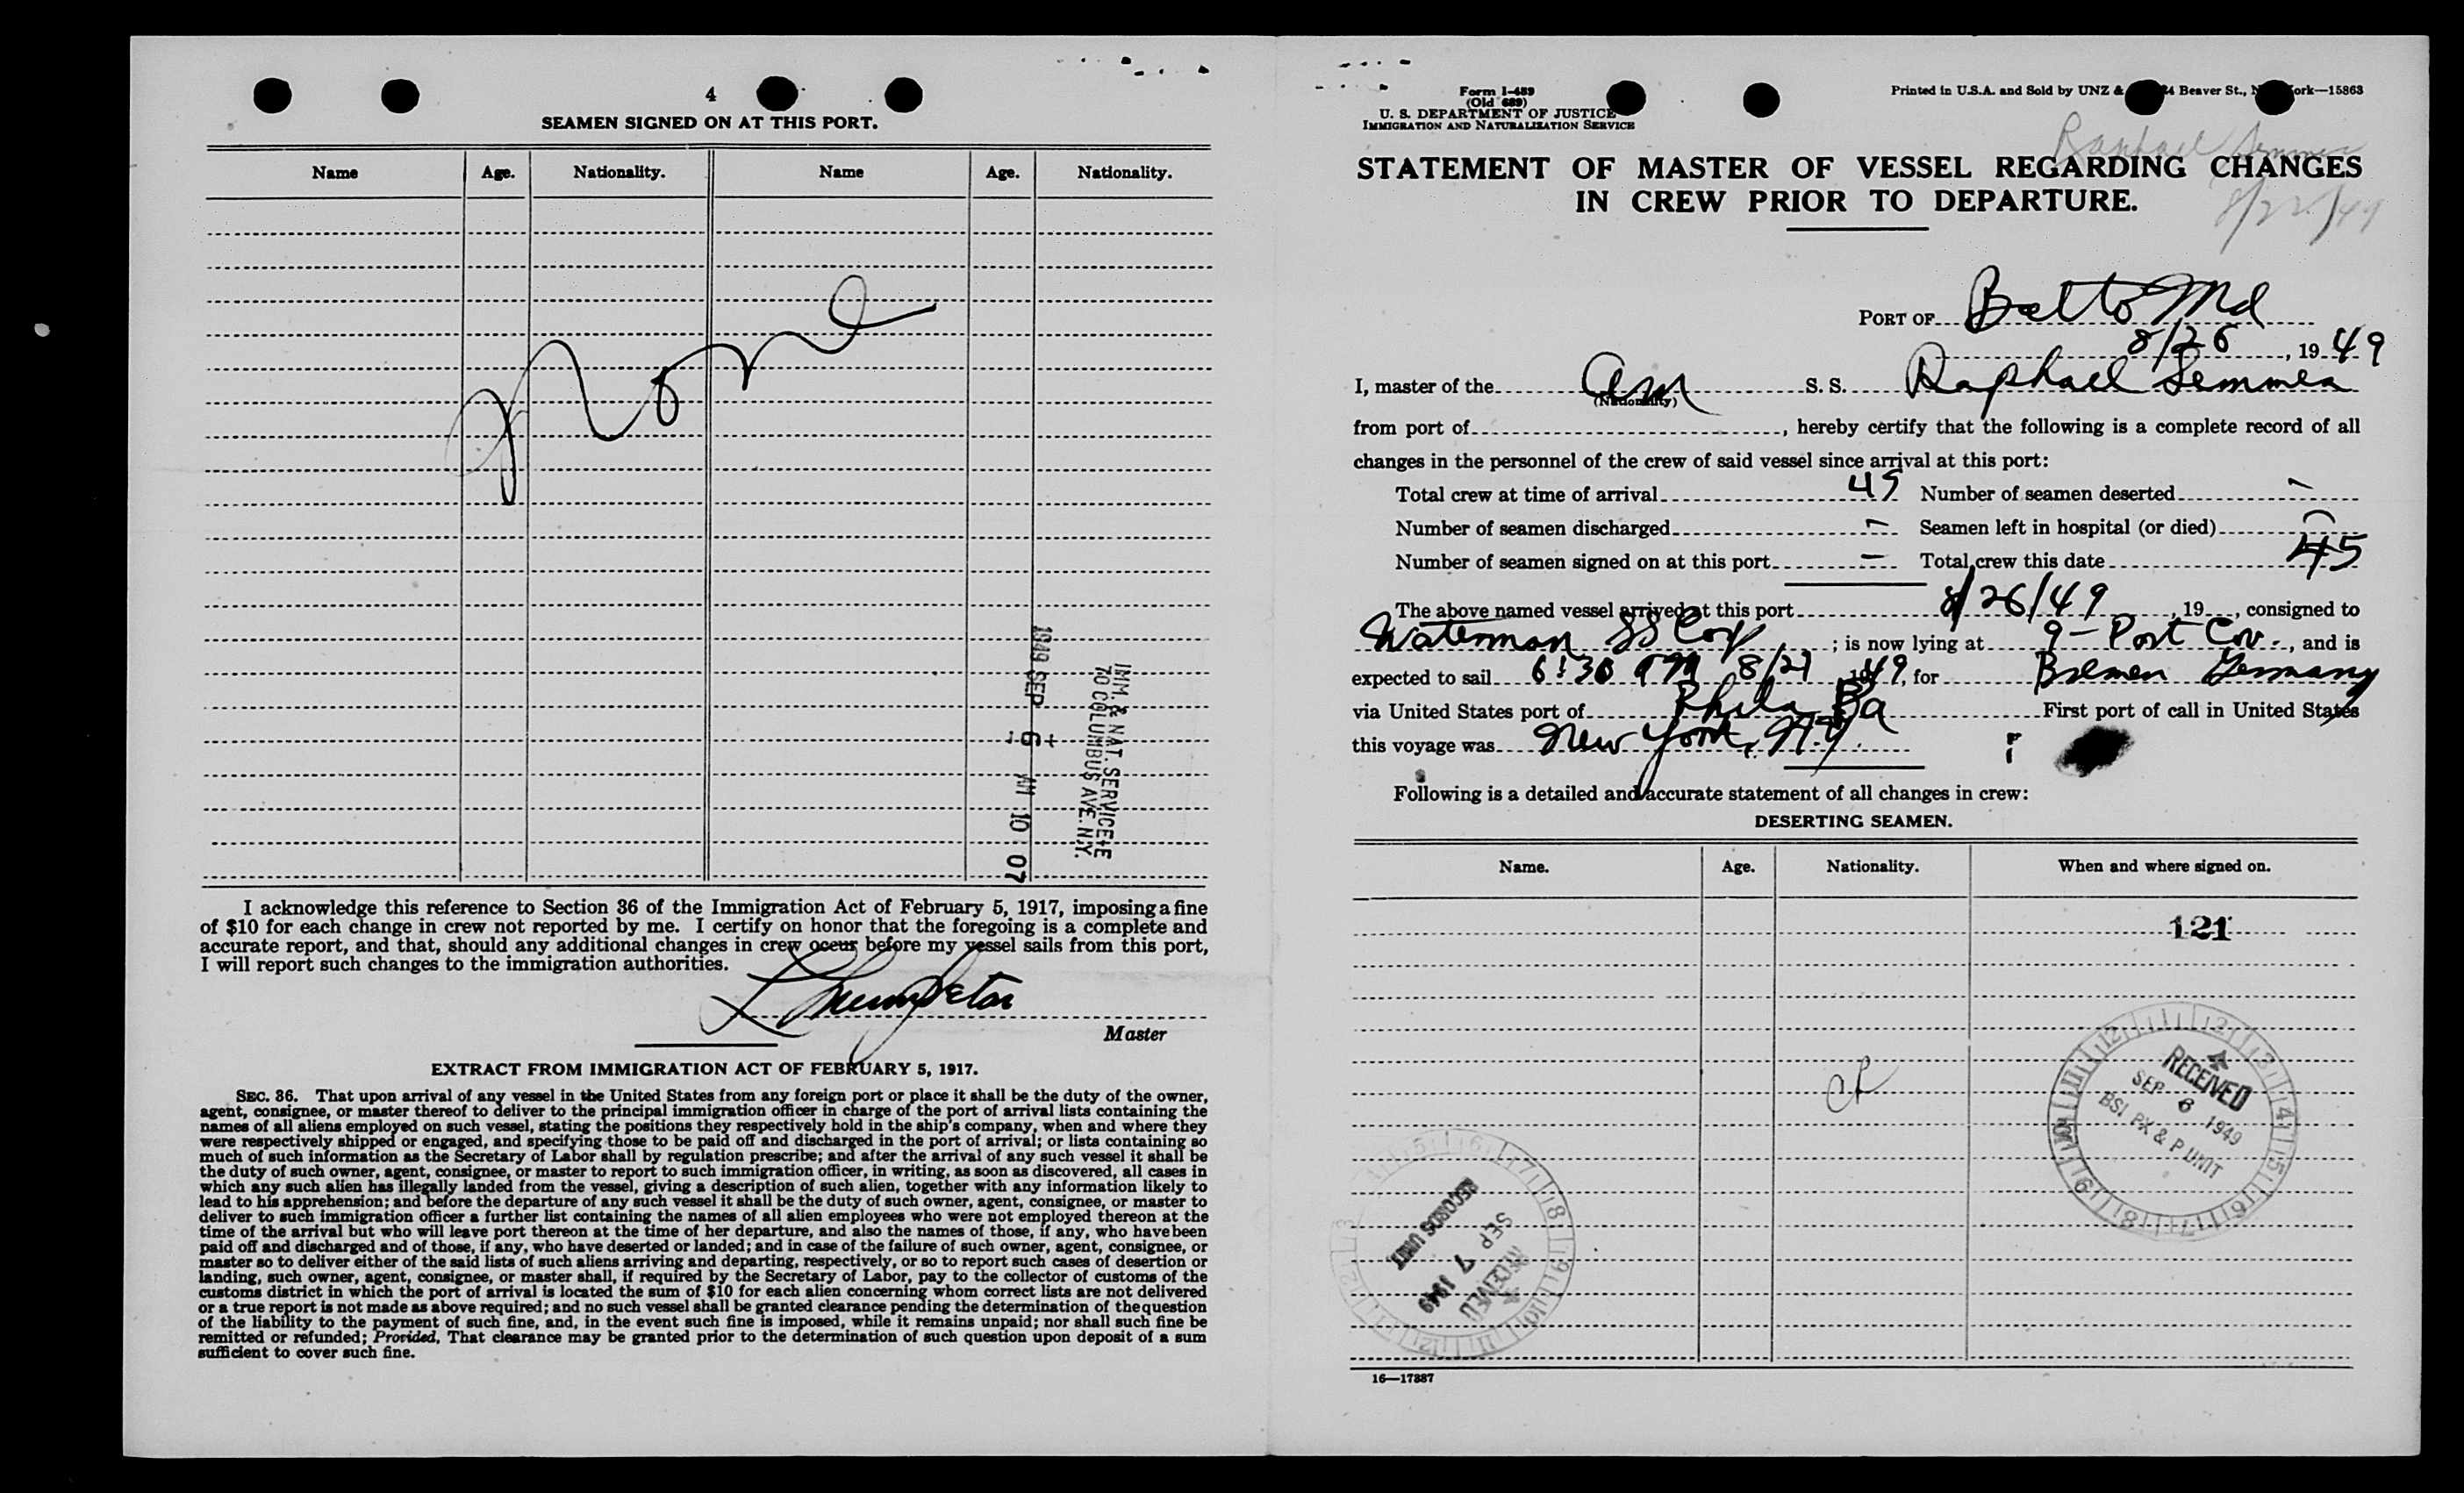 4
SEAMEN SIGNED ON AT THIS PORT.
Name Age. Nationality. Name Age. Nationality.
None
IMM. & NAT. SERVICE
70 COLUMBUS AVE. N.Y.
1949 SEP 6 AM 10 07
I acknowledge this reference to Section 36 of the Immigration Act of February 5, 1917, imposing a fine
of $10 for each change in crew not reported by me. I certify on honor that the foregoing is a complete and
accurate report, and that, should any additional changes in crew occur before my vessel sails from this port,
I will report such changes to the immigration authorities.
Master
EXTRACT FROM IMMIGRATION ACT OF FEBRUARY 5, 1917.
SEC. 36. That upon arrival of any vessel in the United States from any foreign port or place it shall be the duty of the owner,
agent, consignee, or master thereof to deliver to the principal immigration officer in charge of the port of arrival lists containing the
names of all aliens employed on such vessel, stating the positions they respectively hold in the ship's company, when and where they
were respectively shipped or engaged, and specifying those to be paid off and discharged in the port of arrival; or lists containing so
much of such information as the Secretary of Labor shall by regulation prescribe; and after the arrival of any such vessel it shall be
the duty of such owner, agent, consignee, or master to report to such immigration officer, in writing, as soon as discovered, all cases in
which any such alien has illegally landed from the vessel, giving a description of such alien, together with any information likely to
lead to his apprehension; and before the departure of any such vessel it shall be the duty of such owner, agent, consignee, or master to
deliver to such immigration officer a further list containing the names of all alien employees who were not employed thereon at the
time of the arrival but who will leave port thereon at the time of her departure, and also the names of those, if any, who have been
paid off and discharged and of those, if any, who have deserted or landed; and in case of the failure of such owner, agent, consignee, or
master so to deliver either of the said lists of such aliens arriving and departing, respectively, or so to report such cases of desertion or
landing, such owner, agent, consignee, or master shall, if required by the Secretary of Labor, pay to the collector of customs of the
customs district in which the port of arrival is located the sum of $10 for each alien concerning whom correct lists are not delivered
or a true report is not made as above required; and no such vessel shall be granted clearance pending the determination of the question
of the liability to the payment of such fine, and, in the event such fine is imposed, while it remains unpaid; nor shall such fine be
remitted or refunded; Provided, That clearance may be granted prior to the determination of such question upon deposit of a sum
sufficient to cover such fine.
Form I-489
(Old 689)
U. S. DEPARTMENT OF JUSTICE
IMMIGRATION AND NATURALIZATION SERVICE
Printed in U.S.A. and Sold by UNZ & 24 Beaver St., N ork—15863
Raphael Semmes
8/22/49
STATEMENT OF MASTER OF VESSEL REGARDING CHANGES
IN CREW PRIOR TO DEPARTURE.
PORT OF Balto Md
8/26, 1949
I, master of the Am S. S. Raphael Semmes
(Nationality)
from port of , hereby certify that the following is a complete record of all
changes in the personnel of the crew of said vessel since arrival at this port:
Total crew at time of arrival 45 Number of seamen deserted -
Number of seamen discharged - Seamen left in hospital (or died) -
Number of seamen signed on at this port - Total crew this date 45
The above named vessel arrived at this port 8/26/49, 19 , consigned to
Waterman SS Corp ; is now lying at 9 - Port Cov. , and is
expected to sail 6:30 PM 8/27 1949, for Bremen Germany
via United States port of Phila Pa First port of call in United States
this voyage was New York, N.Y.
Following is a detailed and accurate statement of all changes in crew:
DESERTING SEAMEN.
Name. Age. Nationality. When and where signed on.
121
RECEIVED
SEP 6 1949
BSI PX & P UNIT
RECORDS UNIT
SEP 7 1949
RECEIVED
16—17887